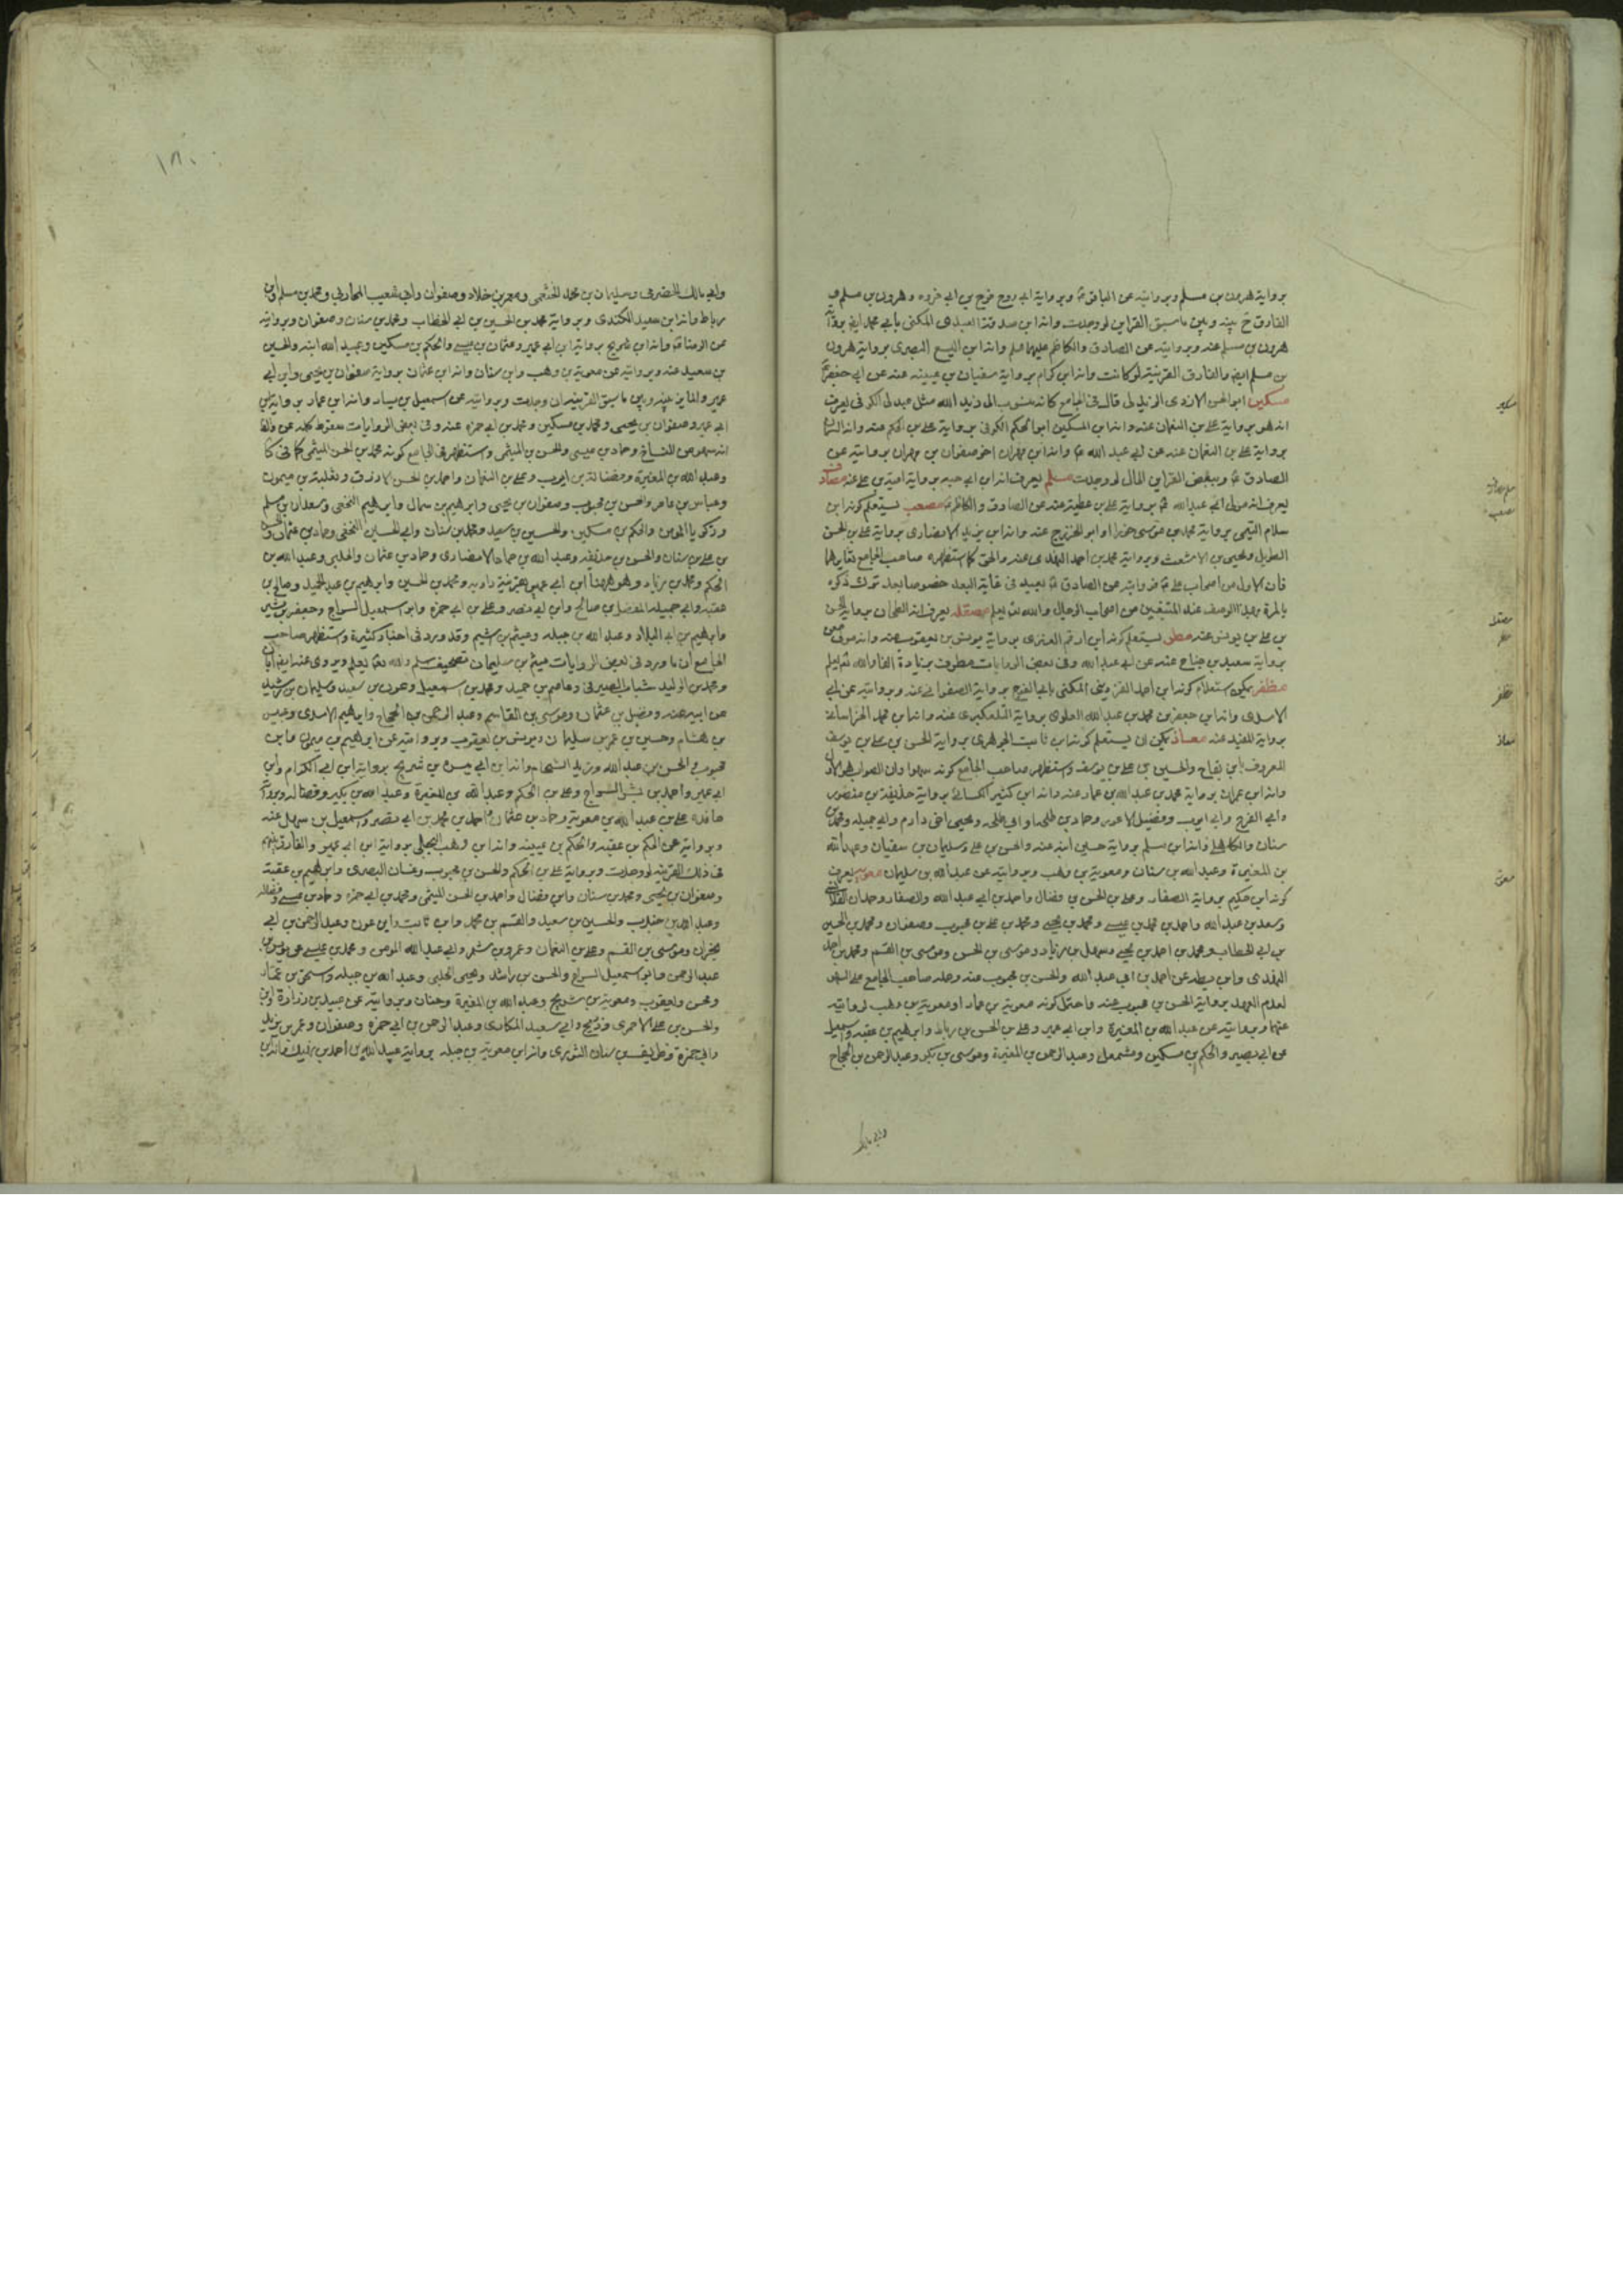 برواية هرون بن مسلم وبروايته عن الباقر وبرواية ابي روح فرج بن ابي فروه وهرون بن مسلم
الفارق بينه وبين ما سبق القراين لو وجدت وانه ابن صدقة العبدى المكنى بابي محمد
هرون بن مسلم عنه وبروايته عن الصادق والكاظم عليهما وانه ابن اليسع البصرى برواية هرون
بن مسلم والفارق القرينة لو كانت وانه ابن كدام برواية سفيان بن عيينه عنه عن ابي جعفر
مسكين ابو الحسن الازدى قال في الجامع كانه منسوب الى زيد الله مثل عبد لى الكوفى يعرف
انه هو برواية على بن النعمان عنه وانه ابن المسكين ابو الحكم الكوفى برواية على بن الحكم عنه
برواية على بن النعمان عنه عن ابي عبد الله وانه ابن مهران اخو صفوان بن مهران بروايته عن
الصادق وببعض القراين لو وجدت مسلم يعرف انه ابن ابي حيه برواية على عنه مصادف
يعرف انه مولى ابي عبد الله برواية على بن عطية عنه عن الصادق والكاظم مصعب يستعلم كونه ابن
سلام التميمى برواية محمد بن موسى وانه ابن يزيد الانصارى برواية على بن الحسن
الطويل ويحيى بن الاشعث وبرواية محمد بن احمد النهدى عنه والحق كما استظهره صاحب الجامع تغايرهما
فان الاول من اصحاب على فروايته عن الصادق بعيد في غاية البعد خصوصا بعد ترك ذكره
بالمرة من اصحاب الرجال والله يعلم مصقله يعرف انه برواية
بن على بن يونس عنه مطر يستعلم كونه ابن ارقم العنزى برواية يونس بن يعقوب عنه وانه مولى معن
برواية سعيد بن جناح عنه عن ابي عبد الله وفى بعض الروايات مطرف بزيادة الفا والله يعلم
مظفر يمكن استعلام كونه ابن احمد القزوينى المكنى بابي الفرج برواية الصفوانى عنه وبروايته عن ابي
الاسدى وانه ابن جعفر بن محمد بن عبد الله العلوى برواية التلعكبرى عنه وانه ابن محمد الخراسانى
برواية المفيد عنه معاذ يمكن ان يستعلم كونه ابن ثابت الجوهرى برواية الحسن بن على بن يوسف
المعروف بابن بقاح والحسين بن على بن يوسف واستظهر صاحب الجامع كونه سهوا وان الصواب هو الاول
وانه ابن عمران برواية محمد بن عبد الله بن عمار عنه وانه ابن كثير الكسائى برواية حذيفة بن منصور
وابي الفرج وابي ايوب وفضيل الاعور وحماد بن طلحه ويحيى اخى دارم وابي جميله ومحمد بن
سنان وانه ابن مسلم برواية حسين ابنه عنه والحسن بن على وسليمان بن سفيان وعبد الله
بن المغيرة وعبد الله بن سنان ومعوية بن وهب وبروايته عن عبد الله بن سليمان معوية يعرف
كونه ابن حكيم برواية الصفار وعلى بن الحسن بن فضال واحمد بن ابي عبد الله والصفار وحمدان القلانسى
وسعد بن عبد الله واحمد بن محمد بن عيسى ومحمد بن يحيى ومحمد بن على بن محبوب وصفوان ومحمد بن الحسين
بن ابي الخطاب ومحمد بن احمد بن يحيى وسهل بن زياد وموسى بن الحسن وموسى بن القسم ومحمد بن احمد
النهدى وابن بطه عن احمد بن ابي عبد الله والحسن بن محبوب عنه وحمله صاحب الجامع على السهو
لعدم العهد برواية الحسن بن محبوب عنه واحتمل كونه معوية بن عمار او معوية بن وهب لروايته
عنهما وبروايته عن عبد الله بن المغيرة وابن ابي عمير وعلى بن الحسن بن رباط وابراهيم بن عقبه واسمعيل
عن ابي بصير والحكم بن مسكين ومشمعل وعبد الرحمن بن المغيرة وموسى بن بكر وعبد الرحمن بن الحجاج
وابي مالك
مسكين
مصادف
مصعب
مصقله
مطر
مظفر
معاذ
معوية
١٨٠
وابي مالك الحضرمى وسليمان بن محمد الخثعمى ومعمر بن خلاد وصفوان وابي شعيب المحاربى ومحمد بن مسلم وابن
رباط وانه ابن سعيد الكندى وبرواية محمد بن الحسين بن ابي الخطاب ومحمد بن سنان وصفوان وبروايته
عن الرضا وانه ابن شريح برواية ابن ابي عمير وعثمان بن عيسى والحكم بن مسكين وعبيد الله ابنه والحسين
بن سعيد عنه وبروايته عن معوية بن وهب وابن سنان وانه ابن عثمان برواية صفوان بن يحيى وابن ابي
عمير والمايز بينه وبين ما سبق القرينة ان وجدت وبروايته عن اسمعيل بن يسار وانه ابن عمار برواية ابن
ابي عمير وصفوان بن يحيى ومحمد بن مسكين ومحمد بن ابي حمزه عنه وفى بعض الروايات سقوط كلمه عن
انه سهو من النساخ وحماد بن عيسى والحسن بن الميثمى واستظهر في الجامع كونه محمد بن الحسن الميثمى كما في
وعبد الله بن المغيرة وفضالة بن ايوب وعلى بن النعمان واحمد بن الحسن الازرق وثعلبة بن ميمون
وعباس بن عامر والحسن بن محبوب وصفوان بن يحيى وابرهيم بن سمال وابرهيم النخعى وسعدان بن مسلم
وزكريا المومن والحكم بن مسكين والحسين بن سعيد ومحمد بن سنان وابي الحسين النخعى وحماد بن عثمان
بن على بن سنان والحسن بن حذيفه وعبد الله بن حماد الانصارى وحماد بن عثمان والحلبى وعبد الله بن
الحكم ومحمد بن زياد وهو ههنا ابن ابي عمير بقرينة راويه ومحمد بن الحسين وابرهيم بن عبد الحميد وصالح بن
عقبه وابي جميله المفضل بن صالح وابن ابي نصر وعلى بن ابي حمزه وابو اسمعيل السراج وجعفر بن بشير
وابرهيم بن ابي البلاد وعبد الله بن جبله وعيثم بن اشيم وقد ورد في اخبار كثيرة واستظهر صاحب
الجامع ان ما ورد في بعض الروايات ميثم بن سليمان تصحيف مسلم والله يعلم ويروى عنه ايضا ابان
ومحمد بن الوليد شباب الصيرفى وعاصم بن حميد ومحمد بن اسمعيل وعون بن سعيد وسليمان بن رشيد
عن ابيه عنه وفضيل بن عثمان وموسى بن القاسم وعبد الرحمن بن الحجاج وابراهيم الاسدى وعبيس
بن هشام وحسين بن عمر بن سليمان ويونس بن يعقوب وبروايته عن ابراهيم بن ميمون وابن
محبوب عن الحسن بن عبد الله وزيد الشحام وانه ابن ابي ميسره بن شريح برواية ابن ابي الكرام وابن
ابي عمير واحمد بن بشر السراج وعلى بن الحكم وعبد الله بن المغيرة وعبد الله بن بكير وفضاله
حافده على بن عبد الله بن معوية وحماد بن عثمان واحمد بن محمد بن ابي نصر واسمعيل بن سهل عنه
وبروايته عن الحكم بن عقبه والحكم بن عيينه وانه ابن وهب البجلى برواية ابن ابي عمير والفارق
فى ذلك القرينه لو وجدت وبرواية على بن الحكم والحسن بن محبوب وغسان البصرى وابراهيم بن عقبة
وصفوان بن يحيى ومحمد بن سنان وابن فضال واحمد بن الحسن الميثمى ومحمد بن ابي حمزه وحماد بن عيسى وفضاله
وعبد الله بن جندب والحسين بن سعيد والقسم بن محمد وابن ثابت وابن عون وعبد الرحمن بن ابي
نجران وموسى بن القسم وعلى بن النعمان وعمرو بن شمر وابي عبد الله المومن ومحمد بن عيسى عن يونس بن
عبد الرحمن وابو اسمعيل السراج والحسن بن راشد ويحيى الحلبى وعبد الله بن جبله واسحق بن عمار
ومحسن ويعقوب ومعوية بن شريح وعبد الله بن المغيرة وحنان وبروايته عن عبيد بن زرارة وابن
والحسن بن على الاحمرى وذريح وابي سعيد المكارى وعبد الرحمن بن ابي حمزه وصفوان وعمر بن يزيد
وابي حمزة وطريف بن سنان الثورى وانه ابن معوية بن جبله برواية عبيد الله بن احمد بن نهيك